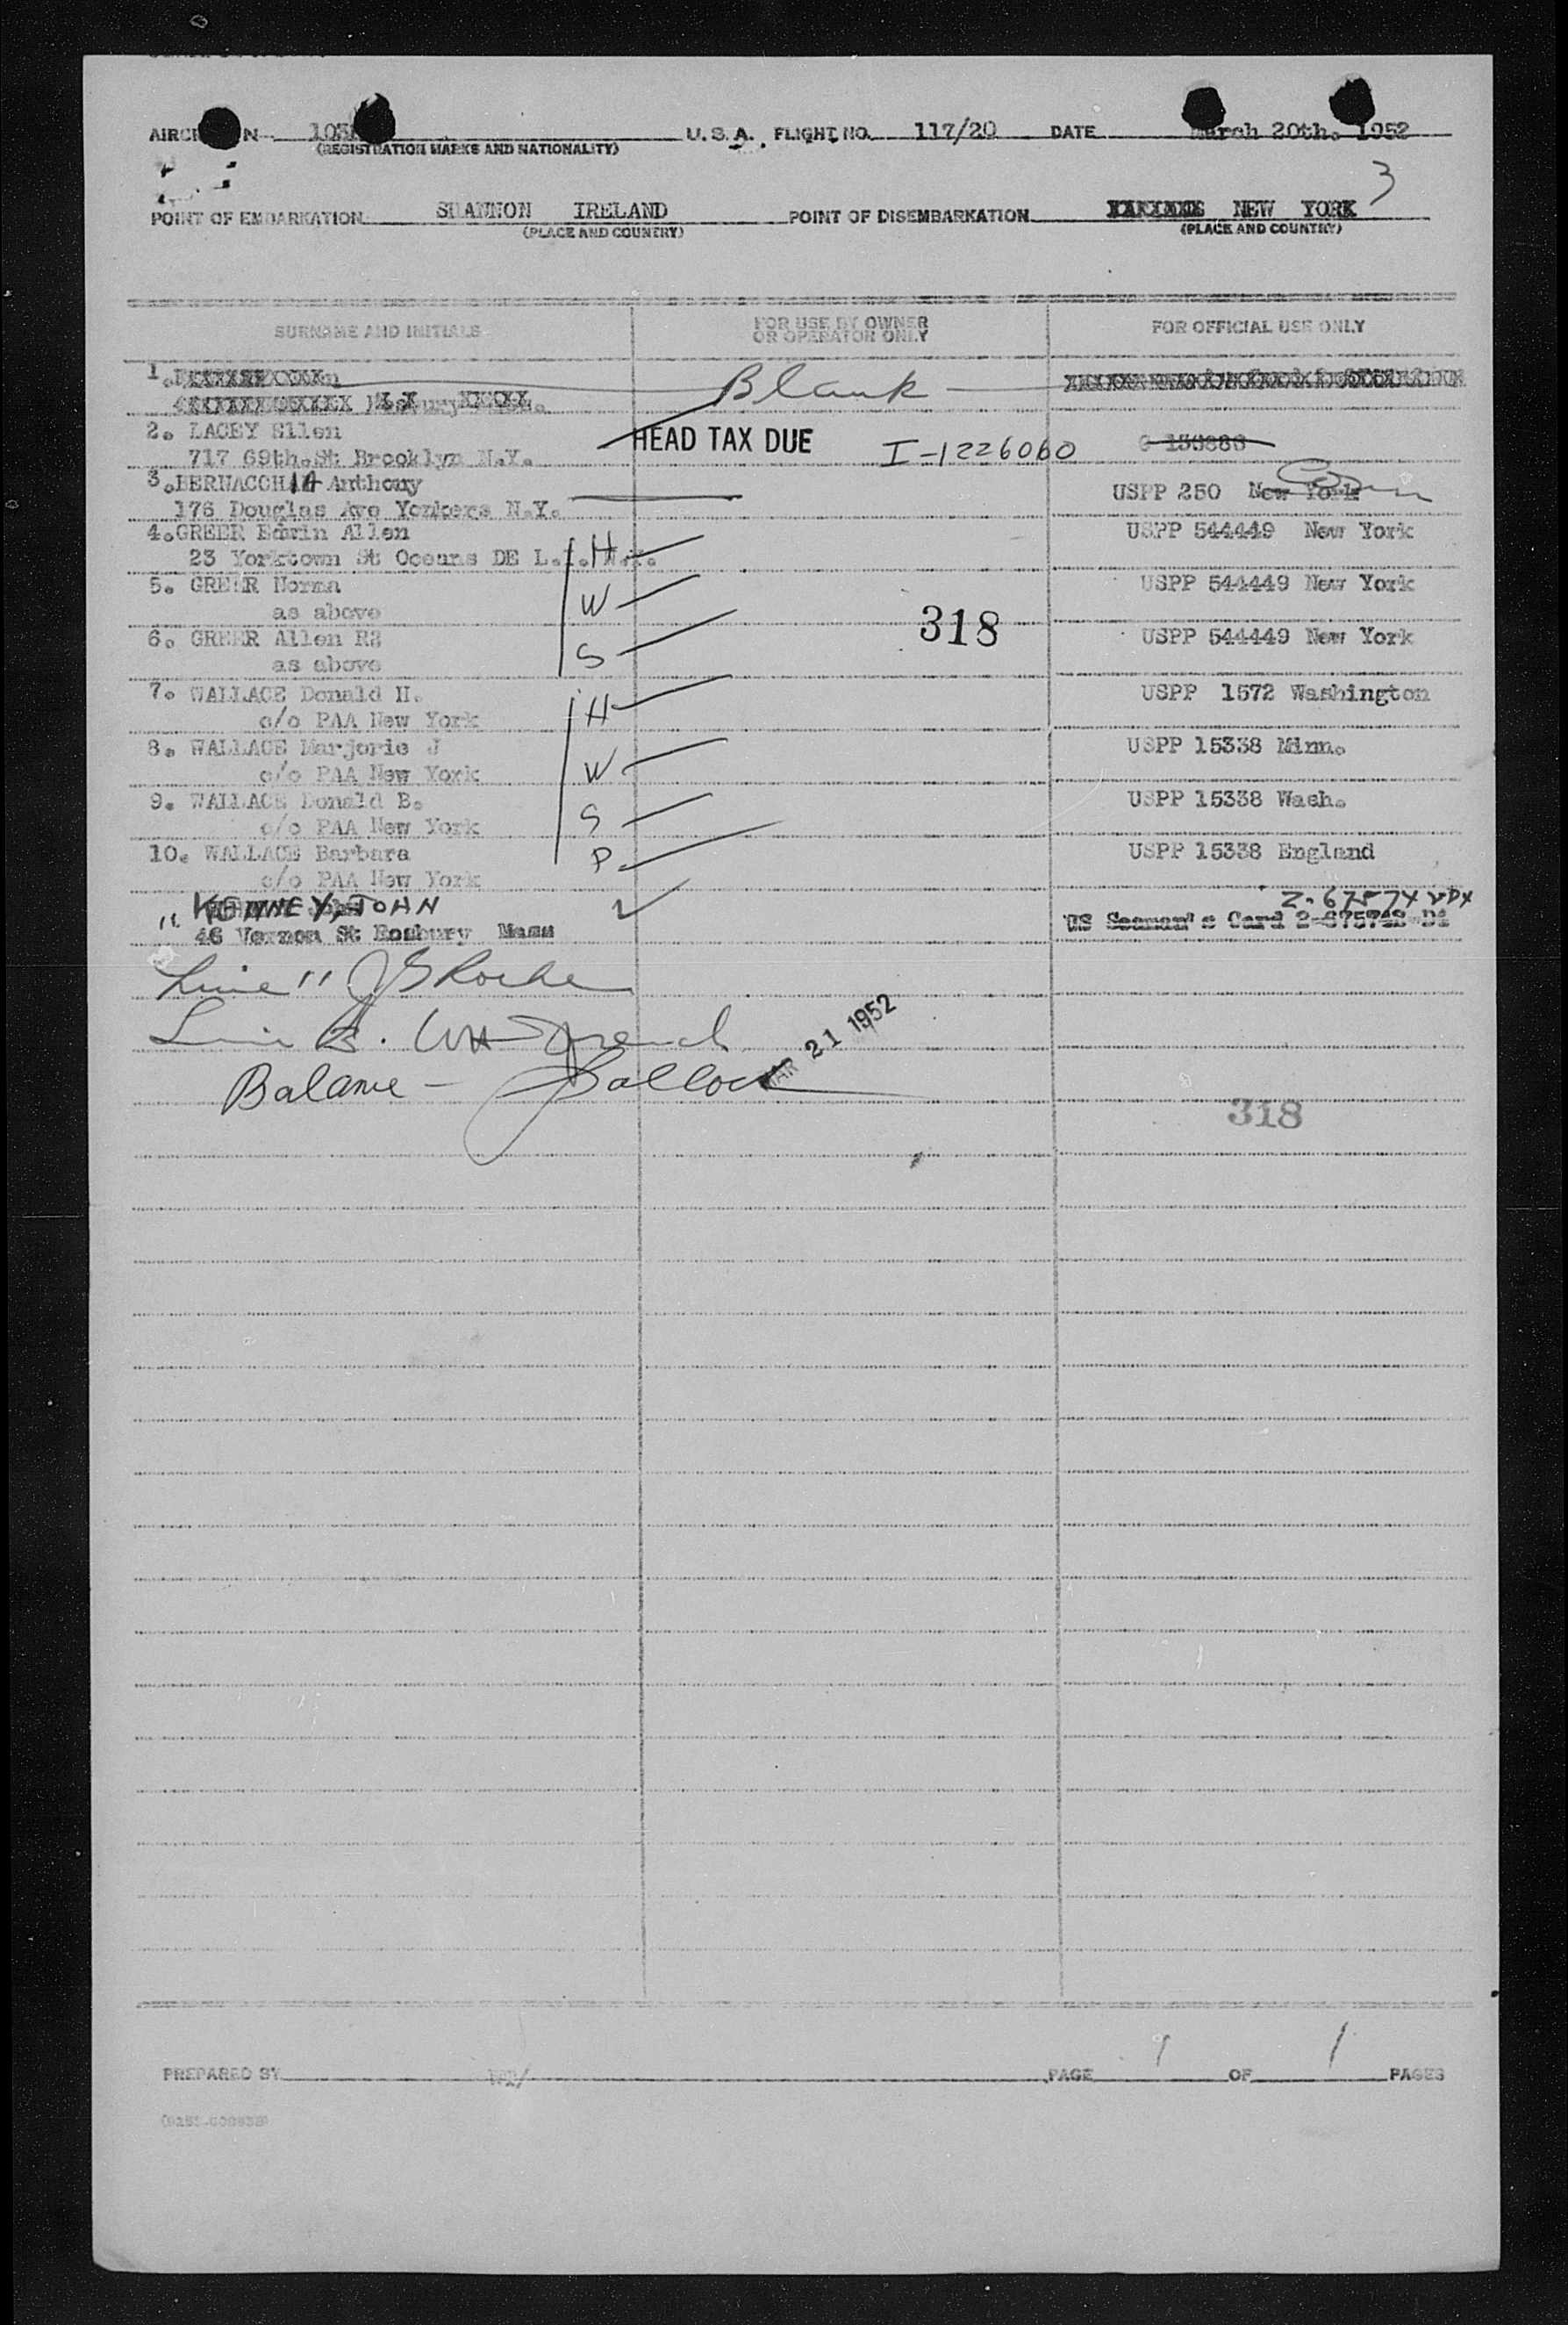 U.S.A. FLIGHT NO. 117/20 DATE March 20th. 1952
(REGISTRATION MARKS AND NATIONALITY)
3
POINT OF EMBARKATION SHANNON IRELAND POINT OF DISEMBARKATION NEW YORK
(PLACE AND COUNTRY) (PLACE AND COUNTRY)
SURNAME AND INITIALS FOR USE BY OWNER OR OPERATOR ONLY FOR OFFICIAL USE ONLY
1. Blank
2. LACEY Ellen HEAD TAX DUE I-1226060
717 69th.St Brooklyn N.Y.
3. BERNACCHIA Anthony USPP 250 New York
176 Douglas Ave Yonkers N.Y.
4. GREER Edwin Allen USPP 544449 New York
23 Yorktown St Oceans DE L.I. N.Y. H
5. GREER Norma USPP 544449 New York
as above W
318
6. GREER Allen R2 USPP 544449 New York
as above S
7. WALLACE Donald H. USPP 1572 Washington
c/o PAA New York H
8. WALLACE Marjorie J USPP 15338 Minn.
c/o PAA New York W
9. WALLACE Donald B. USPP 15338 Wash.
c/o PAA New York S
10. WALLACE Barbara USPP 15338 England
c/o PAA New York P
11 KENNEY, JOHN
46 Vernon St Roxbury Mass US Seaman's Card
Line 11 Roche
Line
MAR 21 1952
Balance -
318
PREPARED BY PAGE OF 1 PAGES